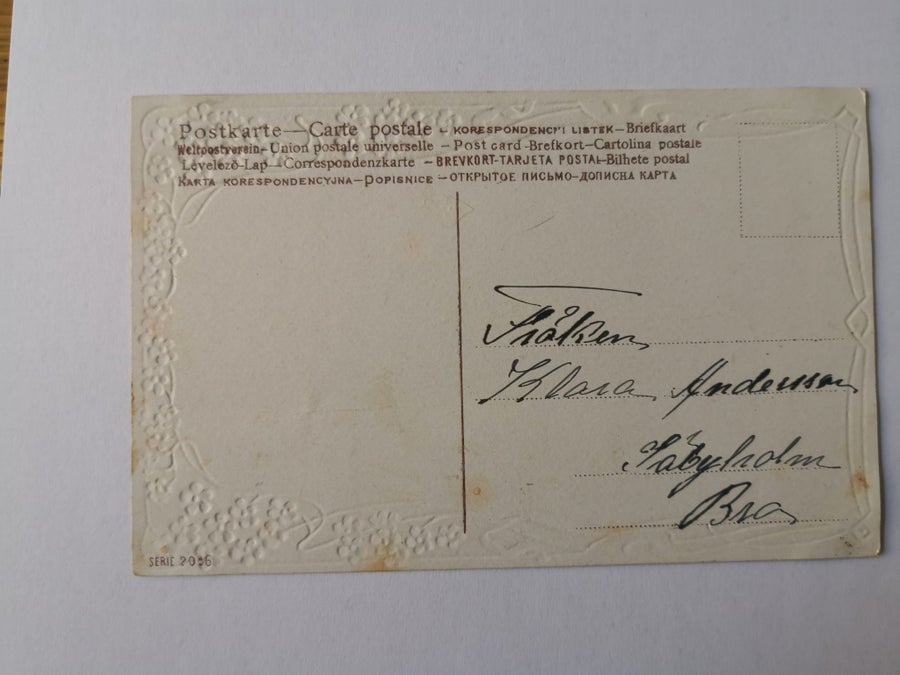 Postkarte—Carte postale – KORESPONDENCI'I LISTEK–Briefkaart
Weltpostverein–Union postale universelle – Post card-Brefkort–Cartolina postale
Levelező-Lap—Correspondenzkarte – BREVKORT-TARJETA POSTAL–Bilhete postal
KARTA KORESPONDENCYJNA–DOPISNICE–ОТКРЫТОЕ ПИСЬМО–ДОПИСНА КАРТА
Fröken
Klara Andersson
Säbyholm
Bro
SERIE